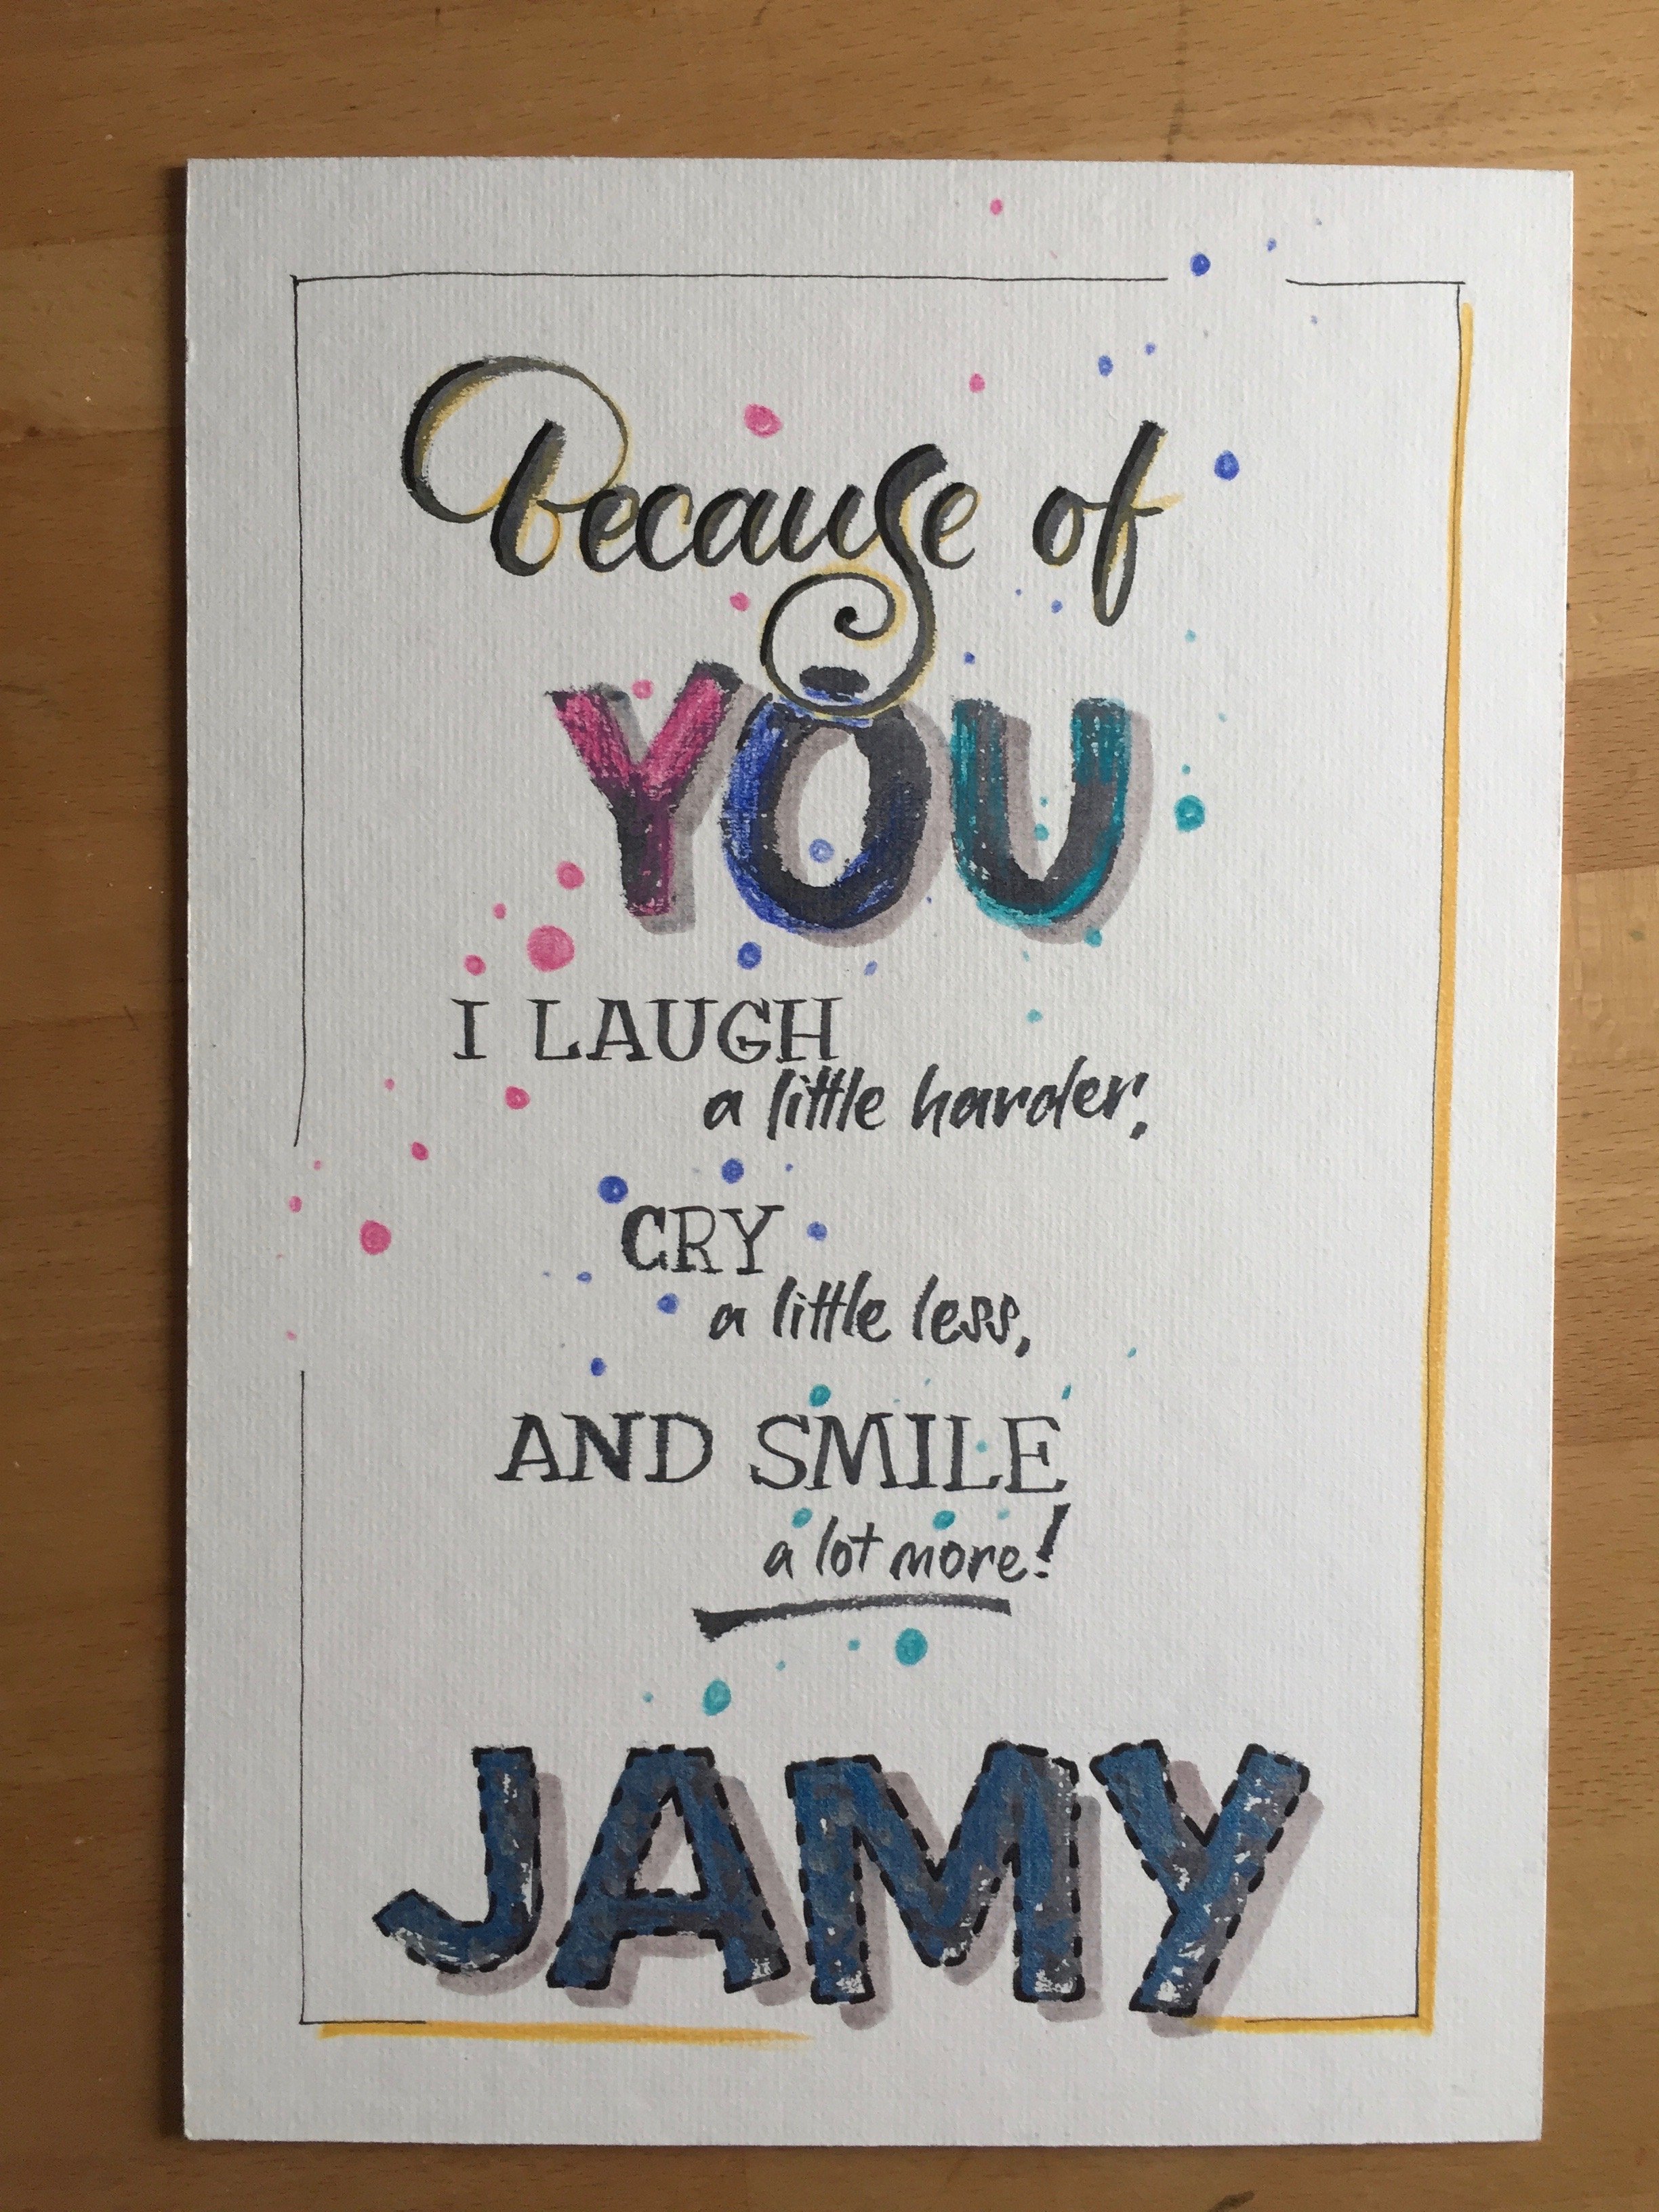 Because of
YOU
I LAUGH
a little harder,
CRY
a little less,
AND SMILE
a lot more!
JAMY